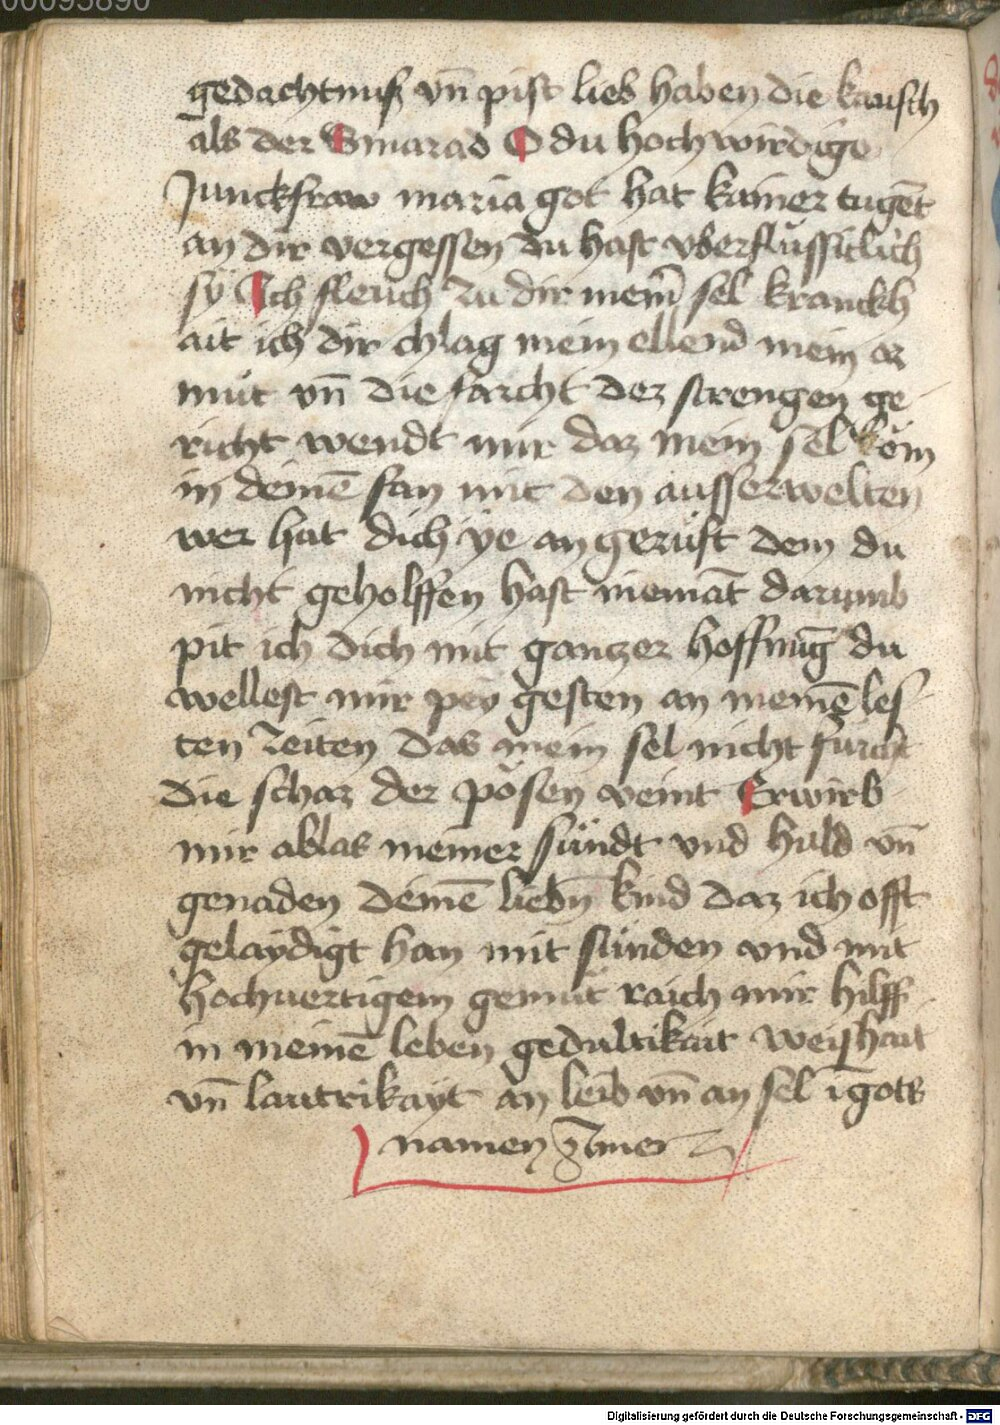 00095890
gedachtnuß vn̄ pist lieb haben die kausch
als der Smarad O du hochwirdige
Junckfraw maria got hat kainer tugēt
an dir vergessen du hast vberflüssitlich
sÿ Ich fleuch zu dir meinʼ sel kranckh
ait ich dir chlag mein ellend mein ar
mut vn̄ die farcht dez strengen ge
richt wendt mir daz mein sel kom
in deinē fan mit den ausserwelten
wer hat dich ÿe angeruft dem du
nicht geholffen hast niemāt darumb
pit ich dich mit gantzer hoffnūg du
wellest mir peÿ gesten an meinē les
ten zeiten das mein sel nicht fürcht
die schar der pösen veint Erwirb
mir ablas meiner sündt vnd huld vn̄
genaden deinē liebn̄ kind daz ich offt
gelaydigt han mit sünden vnd mit
hochuertigem gemüt raich mir hilff
in meinē leben gedultikait weishait
vn̄ lautrikayt an leib vn̄ an sel ī gots
namen Amen
Digitalisierung gefördert durch die Deutsche Forschungsgemeinschaft - DFG